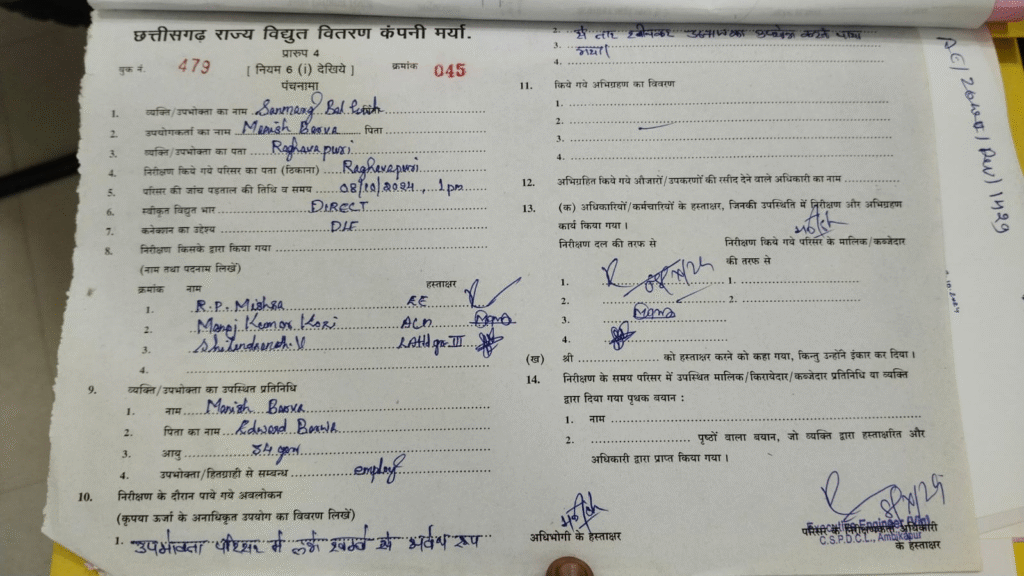 छत्तीसगढ़ राज्य विद्युत वितरण कंपनी मर्या.
प्रारुप 4
बुक नं. 479 [ नियम 6 (i) देखिये ] क्रमांक 045
पंचनामा
1. व्यक्ति/उपभोक्ता का नाम
2. उपयोगकर्ता का नाम Manish Barva पिता
3. व्यक्ति/उपभोक्ता का पता Raghavapuri
4. निरीक्षण किये गये परिसर का पता (ठिकाना) Raghavapuri
5. परिसर की जांच पड़ताल की तिथि व समय 08/10/2024, 1pm
6. स्वीकृत विद्युत भार DIRECT
7. कनेक्शन का उद्देश्य DLF
8. निरीक्षण किसके द्वारा किया गया
(नाम तथा पदनाम लिखें)
क्रमांक नाम हस्ताक्षर
1. R.P. Mishra EE
2. Manoj Kumar Kori
3.
4.
9. व्यक्ति/उपभोक्ता का उपस्थित प्रतिनिधि
1. नाम Manish Barva
2. पिता का नाम Edward Barwa
3. आयु 34
4. उपभोक्ता/हितग्राही से सम्बन्ध
10. निरीक्षण के दौरान पाये गये अवलोकन
(कृपया ऊर्जा के अनाधिकृत उपयोग का विवरण लिखें)
1. उपभोक्ता परिसर में लगे खम्बे से अवैध रूप
2. से तार
3. गया।
4.
11. किये गये अभिग्रहण का विवरण
1.
2.
3.
4.
12. अभिग्रहित किये गये औजारों/उपकरणों की रसीद देने वाले अधिकारी का नाम
13. (क) अधिकारियों/कर्मचारियों के हस्ताक्षर, जिनकी उपस्थिति में निरीक्षण और अभिग्रहण
कार्य किया गया।
निरीक्षण दल की तरफ से निरीक्षण किये गये परिसर के मालिक/कब्जेदार
की तरफ से
1. 1.
2. 2.
3.
4.
(ख) श्री को हस्ताक्षर करने को कहा गया, किन्तु उन्होंने इंकार कर दिया।
14. निरीक्षण के समय परिसर में उपस्थित मालिक/किरायेदार/कब्जेदार प्रतिनिधि या व्यक्ति
द्वारा दिया गया पृथक बयान :
1. नाम
2. पृष्ठों वाला बयान, जो व्यक्ति द्वारा हस्ताक्षरित और
अधिकारी द्वारा प्राप्त किया गया।
अभियोगी के हस्ताक्षर
Executive Engineer
C.S.P.D.C.L., Ambikapur
परिसर के निरीक्षणकर्ता अधिकारी
के हस्ताक्षर